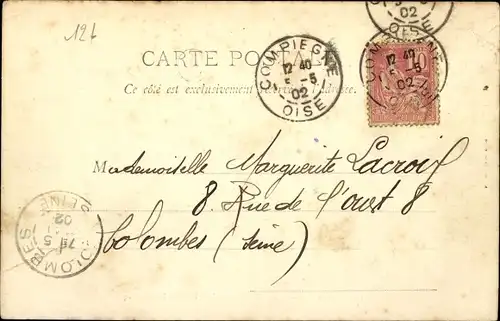 12f
CARTE POSTALE
Ce côté est exclusivement réservé à l'adresse.
COMPIEGNE
12 40
5 -5
02
OISE
COMPIEGNE
12 40
5 -5
02
OISE
02
OISE
10
Mademoiselle Marguerite Lacroix
8 Rue de l'ouest 8
Colombes (Seine)
COLOMBES
7E
5
02
SEINE